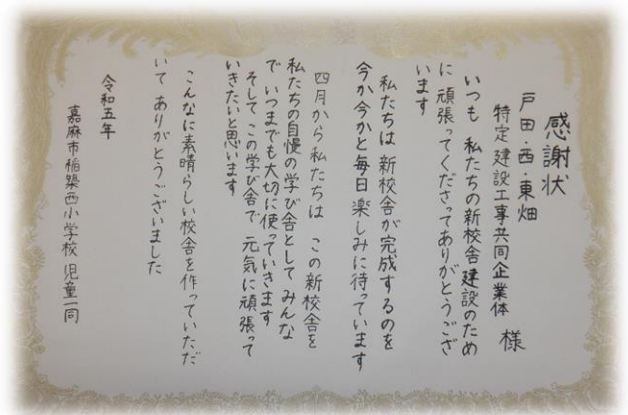 感謝状
戸田・西・東畑
特定建設工事共同企業体 様
いつも 私たちの新校舎建設のため
に 頑張ってくださってありがとうござ
います
私たちは 新校舎が完成するのを
今か今かと毎日楽しみに待っています
四月から私たちは この新校舎を
私たちの自慢の学び舎として みんな
で いつまでも大切に使っていきます
そして この学び舎で 元気に頑張って
いきたいと思います
こんなに素晴らしい校舎を作っていただ
いて ありがとうございました
令和五年
嘉麻市稲築西小学校 児童一同